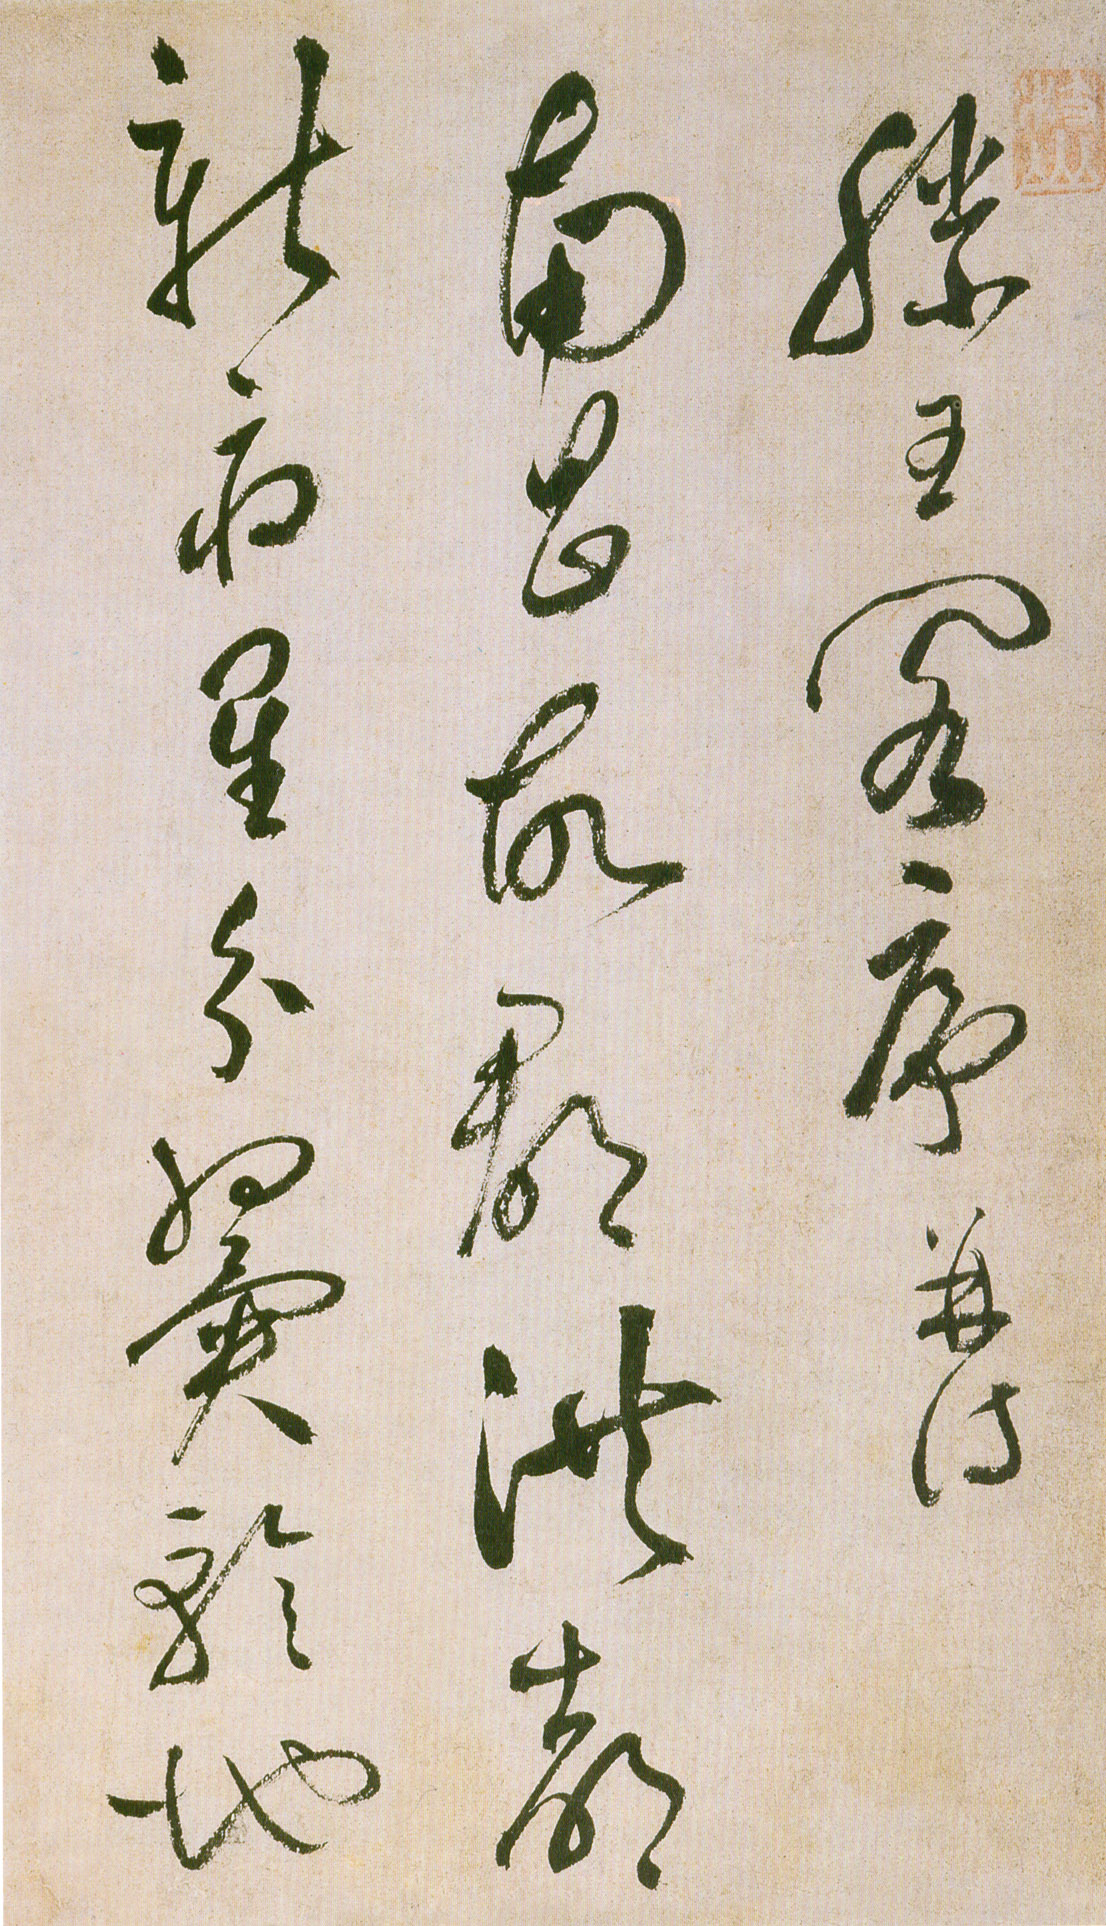 滕王閣序 並詩
南昌故郡洪都
新府星分翼軫地